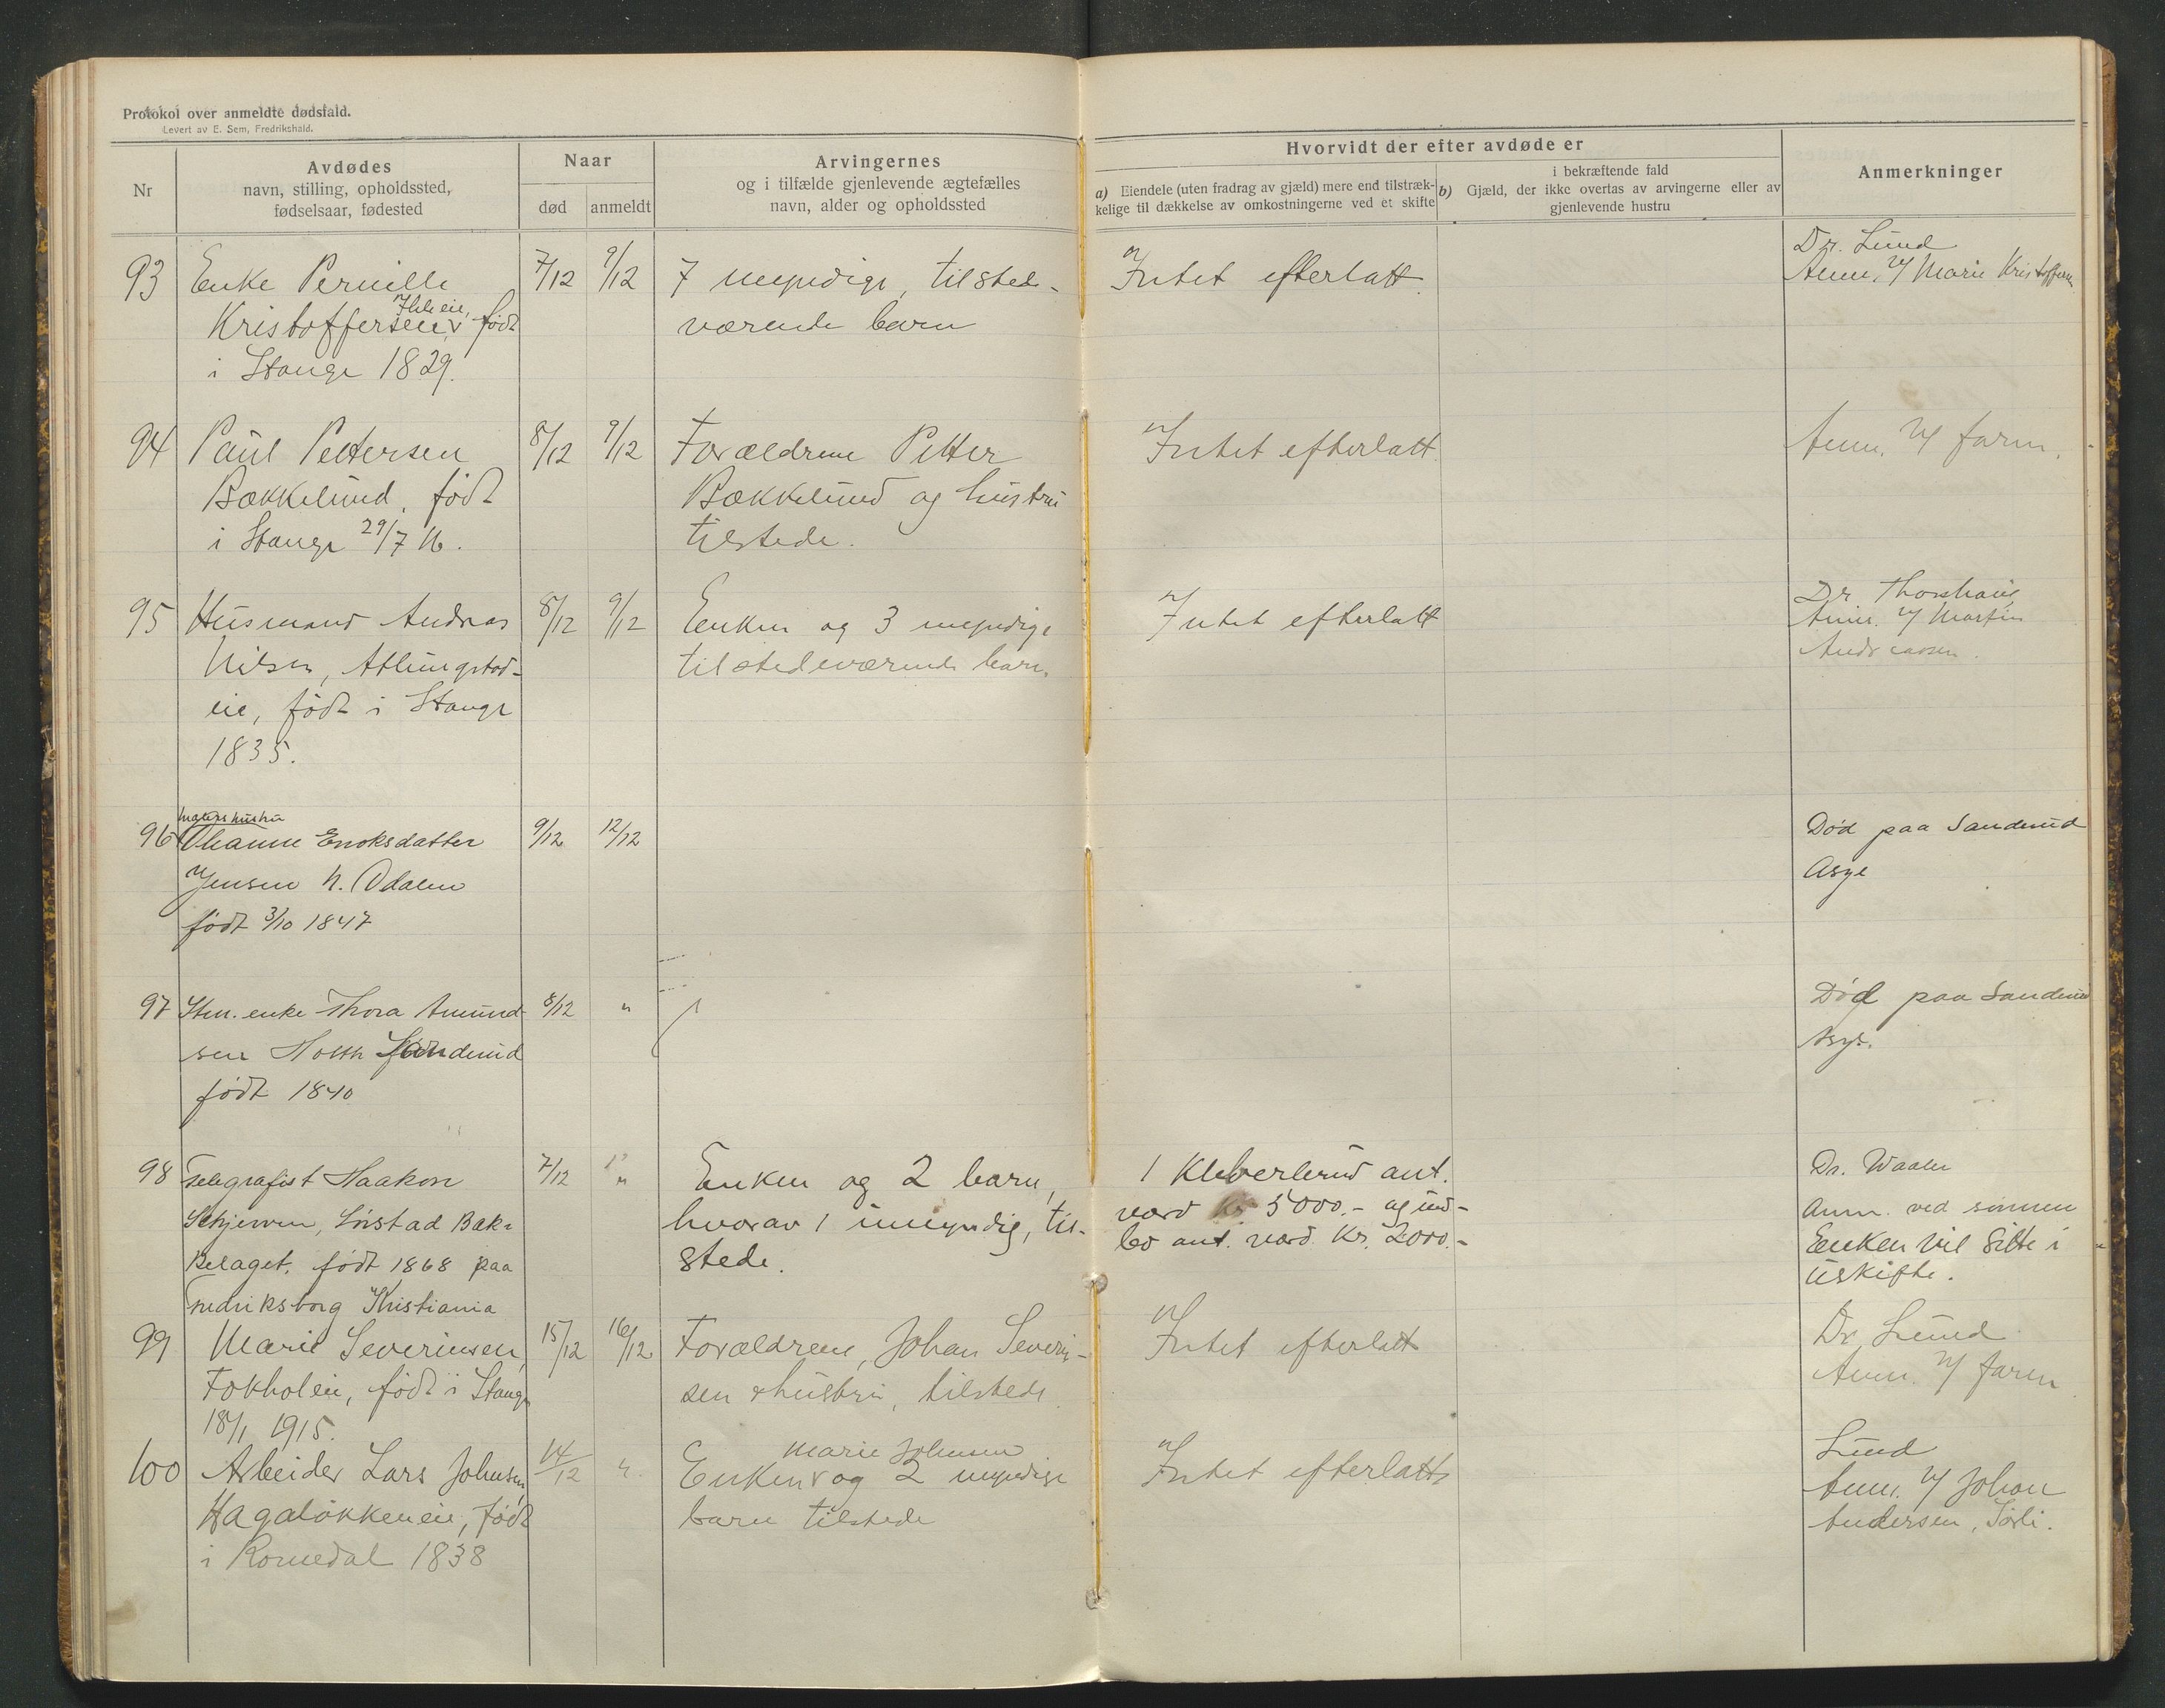 Protokol over anmeldte dødsfald.
Levert av E. Sem, Fredrikshald.
Nr
Avdødes
navn, stilling, opholdssted,
fødselsaar, fødested
Naar
død
anmeldt
Arvingernes
og i tilfælde gjenlevende ægtefælles
navn, alder og opholdssted
Hvorvidt der efter avdøde er
a) Eiendele (uten fradrag av gjæld) mere end tilstræk-
kelige til dækkelse av omkostningerne ved et skifte
i bekræftende fald
b) Gjæld, der ikke overtas av arvingerne eller av
gjenlevende hustru
Anmerkninger
93 Enke Pernille
Kristoffersen, født
i Stange 1829.
7/12 9/12
7 myndige, tilstede-
værende barn
Intet efterlatt.
Dr. Lund
Anm. v/ Marie Kristoffersen
94 Paul Pettersen
Bækkelund, født
i Stange 29/7 16.
8/12 9/12
Forældrene Petter
Bækkelund og hustru
tilstede.
Intet efterlatt.
Anm. v/ faren.
95 Husmand Andreas
Nilsen, Atlungstad-
eie, født i Stange
1835.
8/12 9/12
Enken og 3 myndige
tilstedeværende barn.
Intet efterlatt
Dr. Thorshaug
Anm. v/ Martin
Andreassen.
96 hustru
Oleanne Enoksdatter
Jensen N. Odalen
født 3/10 1847
9/12 12/12
Død paa Sanderud
Asyl
97 enke Thora Amund-
sen Sanderud
født 1840
8/12 "
Død paa Sanderud
Asyl.
98 Telegrafist Haakon
Skjerven, Sørstad Bæk-
kelaget, født 1868 paa
Fredriksborg Kristiania
7/12 "
Enken og 2 barn,
hvorav 1 umyndig, til-
stede.
1 Kløverlund ant.
værd Kr 5000.- og ind-
bo ant. værd. Kr. 2000.-
Dr. Waaler
Anm. ved sønnen
Enken vil sitte i
uskifte.
99 Marie Severinsen,
Fokholeie, født i Stange
18/1 1915.
15/12 16/12
Forældrene, Johan Severin-
sen & hustru, tilstede.
Intet efterlatt
Dr. Lund
Anm. v/ faren
100 Arbeider Lars Johnsen,
Hagaløkkeneie, født
i Romedal 1838
14/12 "
Marie Johnsen
Enken og 2 myndige
barn tilstede
Intet efterlatt
Lund
Anm. v/ Johan
Andersen, Sørli.